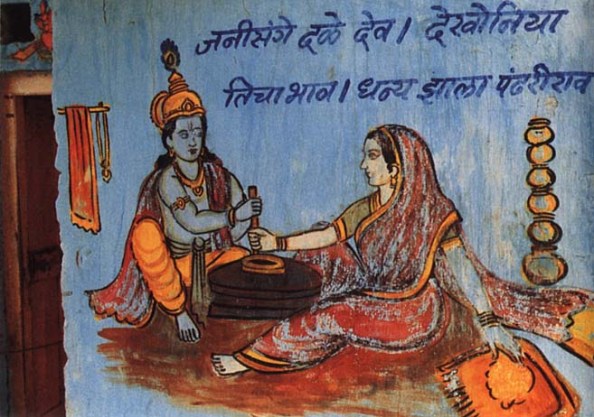 जनीसंगे दळे देव। देखोनिया
तिचा भाव। धन्य झाला पंढरीराव